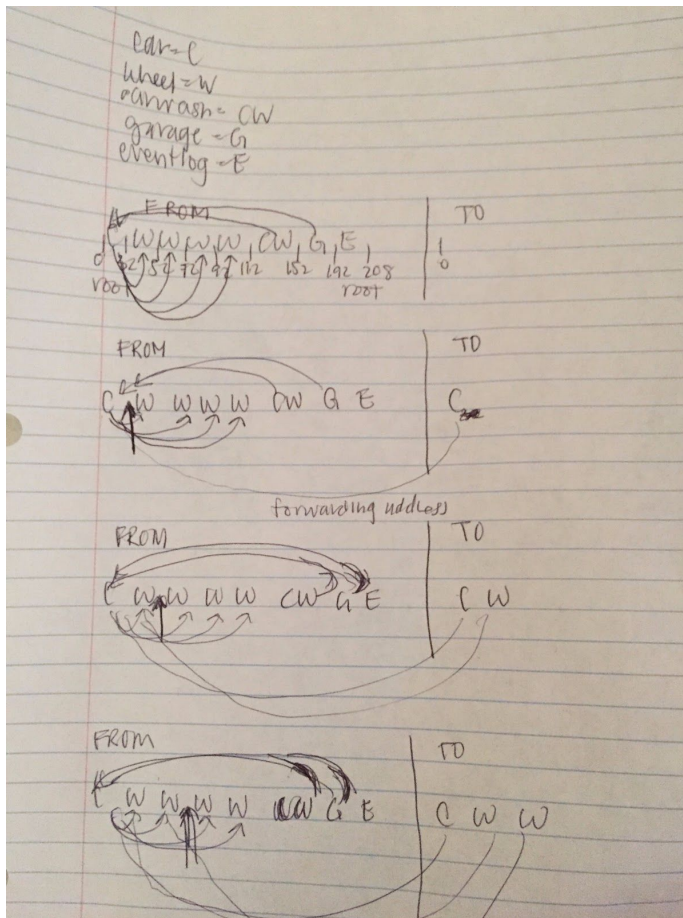 car = C
wheel = W
carwash = CW
garage = G
eventlog = E
FROM TO
C W W W W CW G E
0 32 52 72 92 112 152 192 208 0
root root
FROM TO
C W W W W CW G E C
forwarding address
FROM TO
C W W W W CW G E C W
FROM TO
C W W W W CW G E C W W